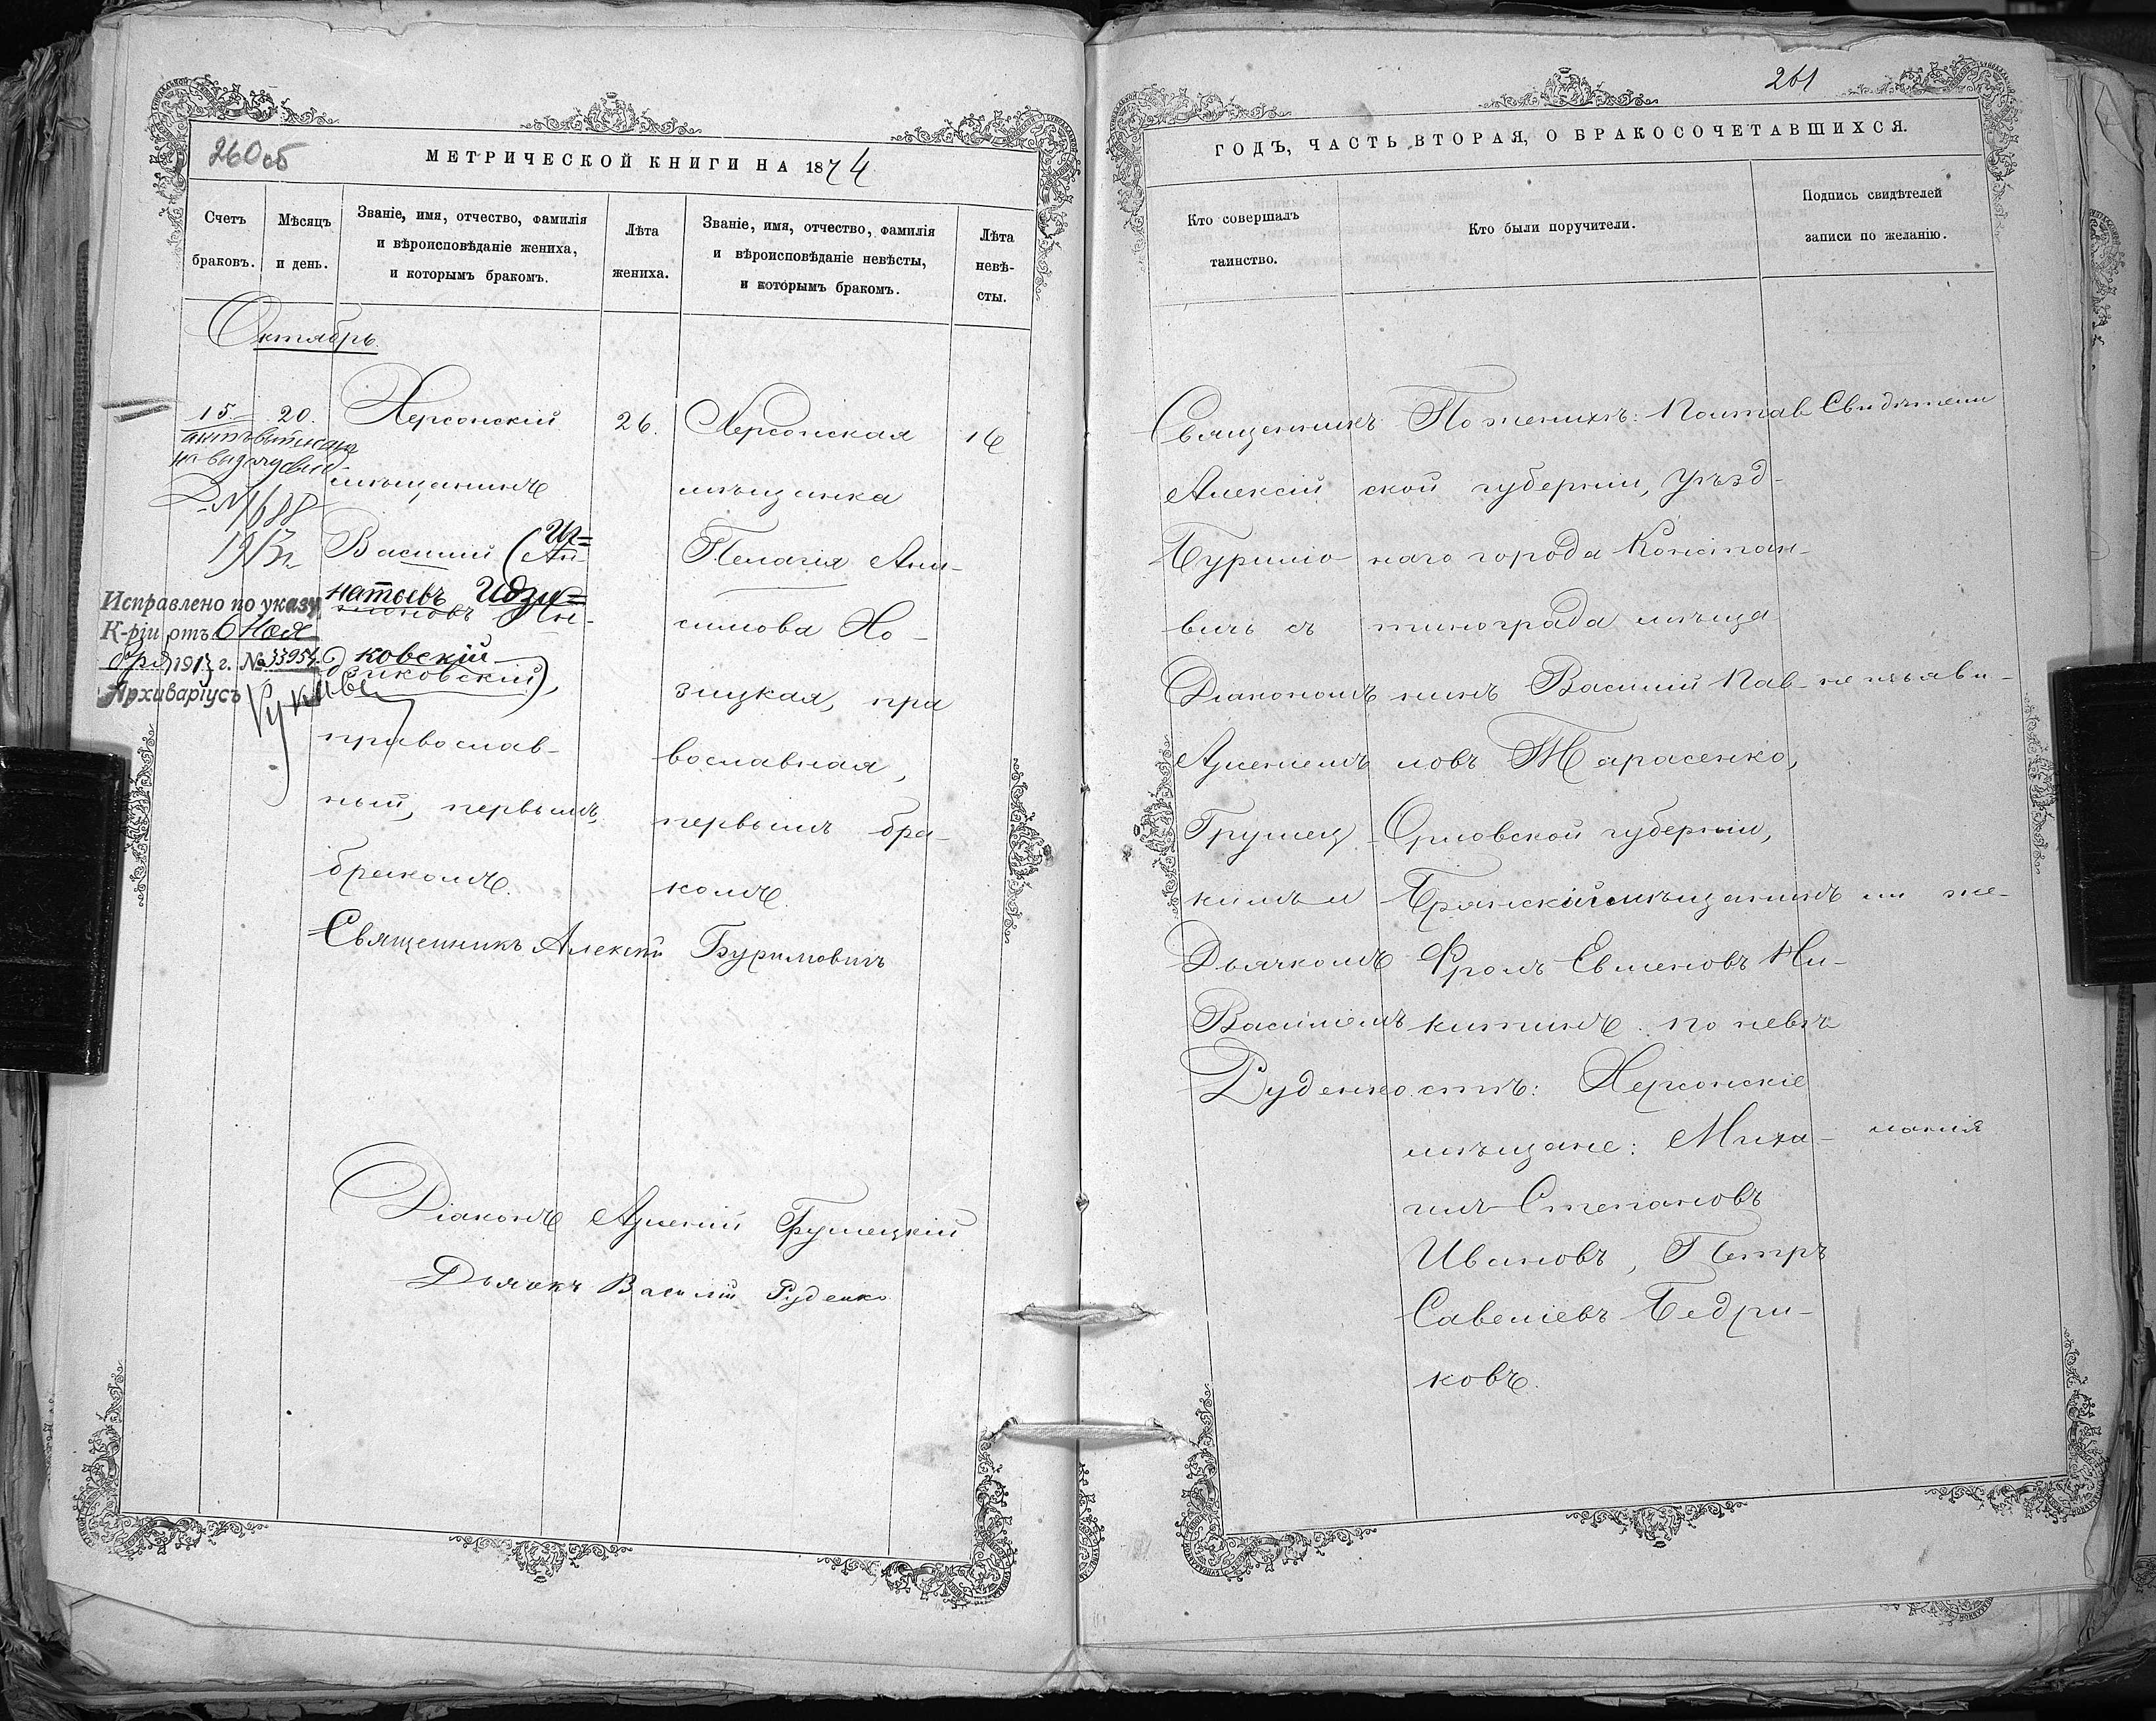 260об
МЕТРИЧЕСКОЙ КНИГИ НА 1874
Счетъ браковъ.
Мѣсяцъ и день.
Званіе, имя, отчество, фамилія
и вѣроисповѣданіе жениха,
и которымъ бракомъ.
Лѣта жениха.
Званіе, имя, отчество, фамилія
и вѣроисповѣданіе невѣсты,
и которымъ бракомъ.
Лѣта невѣ-
сты.
Октябрь.
15.
20.
№ 1688
1913 г.
Исправлено по указу
К-ріи отъ 6 Ноя
бря 1913 г. № 33954
Архиваріусъ
Херсонскій
мѣщанинъ
Василій (Иг=
натьевъ Идзи=
ковскій
дзиковскій),
православ-
ный, первымъ
бракомъ.
26.
Херсонская
мѣщанка
Пелагія Ани-
симова Но-
зицкая, пра
вославная,
первымъ бра-
комъ.
16
Священникъ Алексій Буримовичъ
Діаконъ Арсеній Грушецкій
Дьячекъ Василій Руденко
261
ГОДЪ, ЧАСТЬ ВТОРАЯ, О БРАКОСОЧЕТАВШИХСЯ.
Кто совершалъ
таинство.
Кто были поручители.
Подпись свидѣтелей
записи по желанію.
Священникъ
Алексій
Буримо-
вичъ съ
Діакономъ
Арсеніемъ
Грушец-
кимъ и
Дьячкомъ
Василіемъ
Руденко.
По женихѣ: Полтав
ской губерніи, уѣзд-
наго города Констан-
тинограда мѣща
нинъ Василій Пав-
ловъ Тарасенко,
Орловской губерніи,
Брянскій мѣщанинъ
Фролъ Евменовъ Ни-
китинъ. по невѣ
стѣ: Херсонскіе
мѣщане: Миха-
илъ Степановъ
Ивановъ, Петръ
Савеліевъ Бедри-
ковъ.
Свидѣтели
не изъяви-
ли же-
ланія